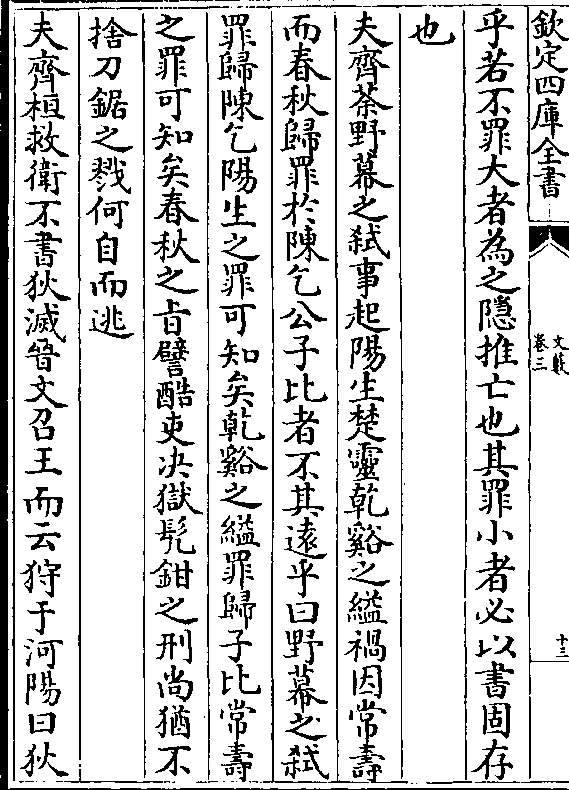 欽定四庫全書
文藪
卷三
十三
乎若不罪大者為之隱推亡也其罪小者必以書固存
也
夫齊荼野幕之弑事起陽生楚靈乾谿之縊禍因常壽
而春秋歸罪於陳乞公子比者不其遠乎曰野幕之弑
罪歸陳乞陽生之罪可知矣乾谿之縊罪歸子比常壽
之罪可知矣春秋之旨譬酷吏决獄髠鉗之刑尚猶不
捨刀鋸之戮何自而逃
夫齊桓救衛不書狄滅晉文召王而云狩于河陽曰狄